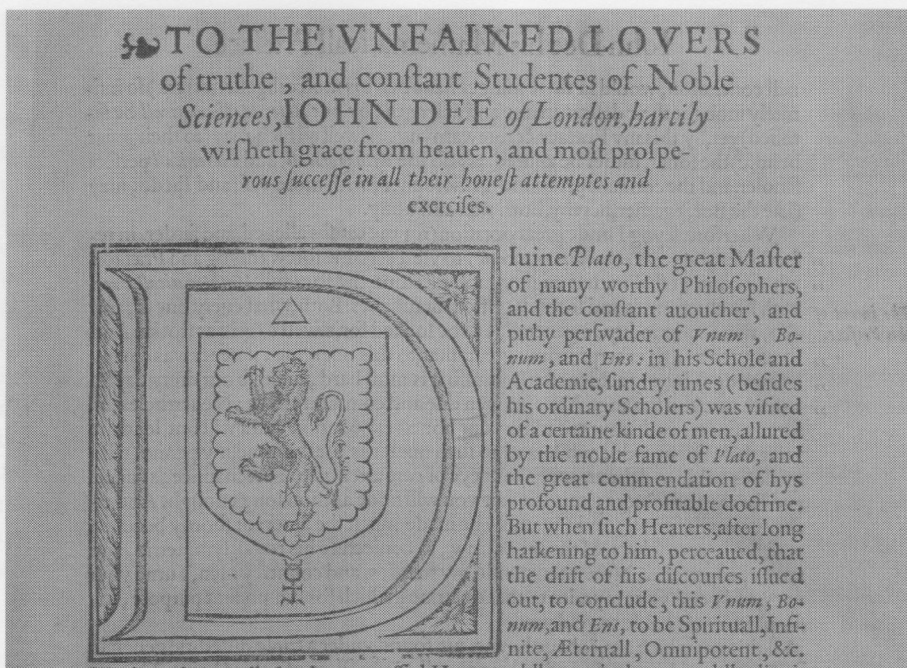 TO THE VNFAINED LOVERS
of truthe, and conſtant Studentes of Noble
Sciences, IOHN DEE of London, hartily
wiſheth grace from heauen, and moſt proſpe-
rous ſucceſſe in all their honeſt attemptes and
exerciſes.
DIuine Plato, the great Maſter
of many worthy Philoſophers,
and the conſtant auoucher, and
pithy perſwader of Vnum, Bo-
num, and Ens: in his Schole and
Academie, ſundry times (beſides
his ordinary Scholers) was viſited
of a certaine kinde of men, allured
by the noble fame of Plato, and
the great commendation of hys
profound and profitable doctrine.
But when ſuch Hearers, after long
harkening to him, perceaued, that
the drift of his diſcourſes iſſued
out, to conclude, this Vnum, Bo-
num, and Ens, to be Spirituall, Infi-
nite, Æternall, Omnipotent, &c.